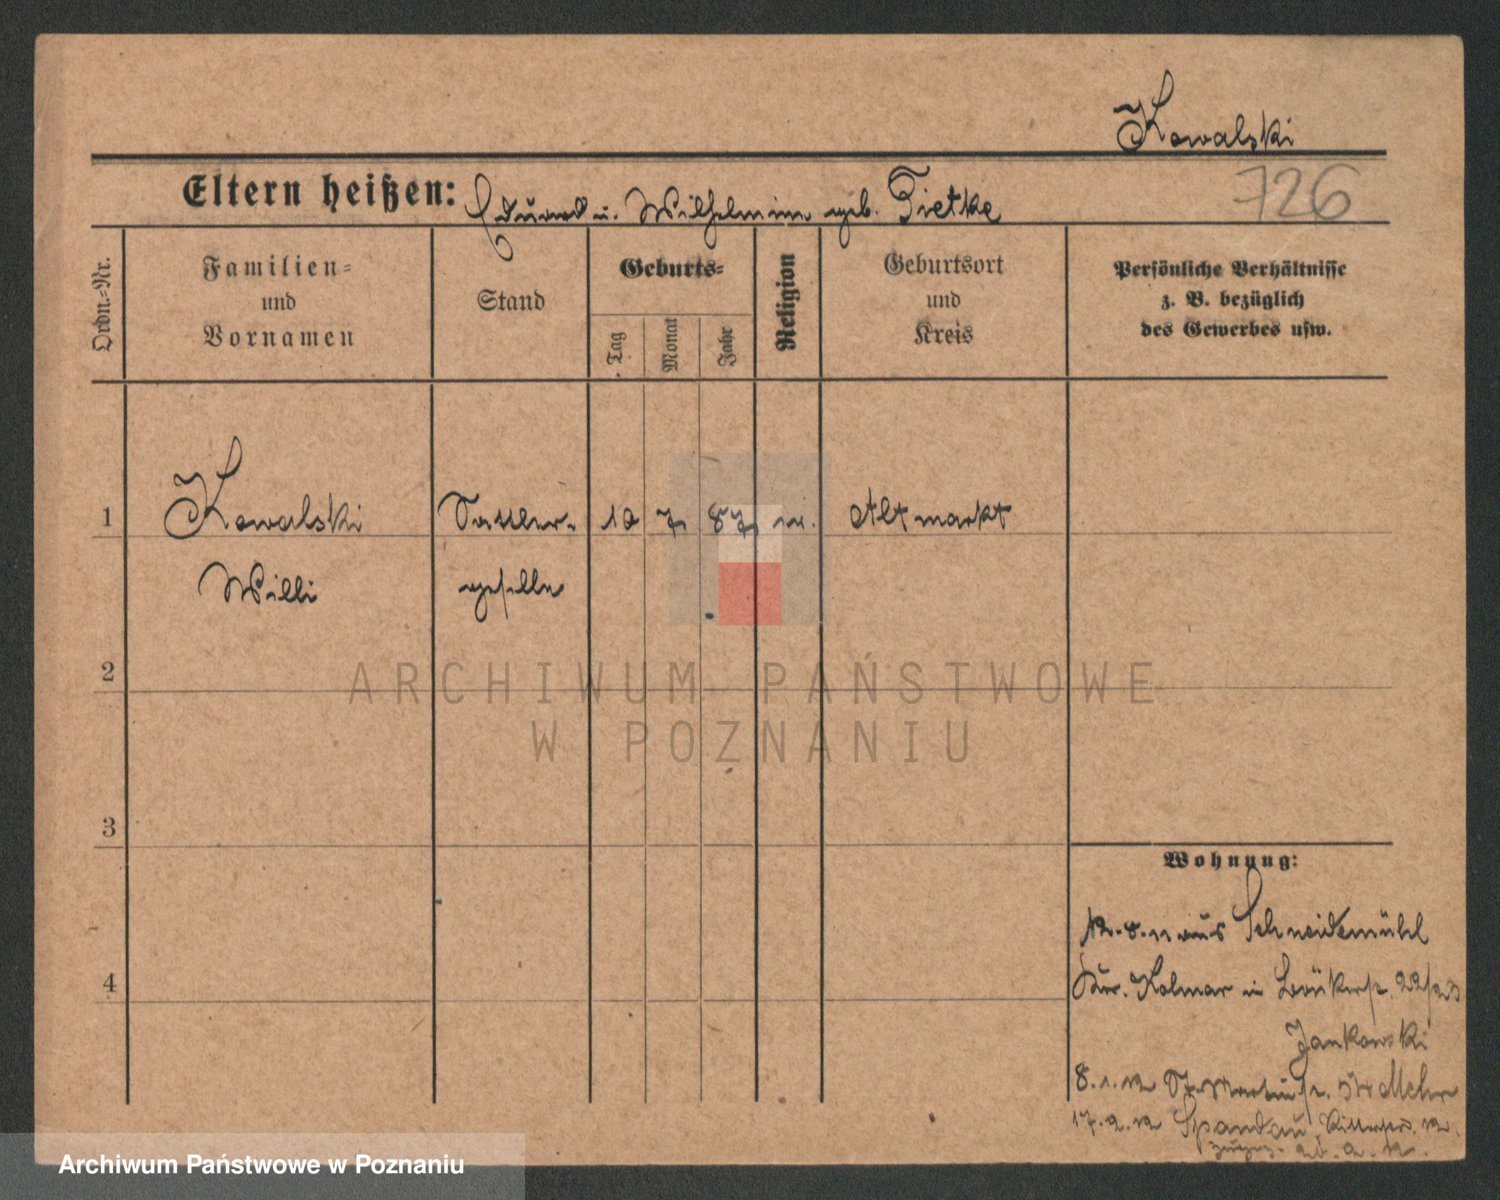 Kowalski
Eltern heißen: Eduard u. Wilhelmine geb. Tietke
726
Ordn.-Nr.
Familien-
und
Vornamen
Stand
Geburts-
Tag
Monat
Jahr
Religion
Geburtsort
und
Kreis
Persönliche Verhältnisse
z. B. bezüglich
des Gewerbes usw.
1
Kowalski
Sattler-
10
7
87
Altmarkt
Willi
geselle
ARCHIWUM PAŃSTWOWE
W POZNANIU
2
3
4
Wohnung:
12.8.11 aus Schneidemühl
Kr. Kolmar in 22/23
Jankowski
8.1.12 St. Martinstr.
17.2.12 Spandau
Archiwum Państwowe w Poznaniu